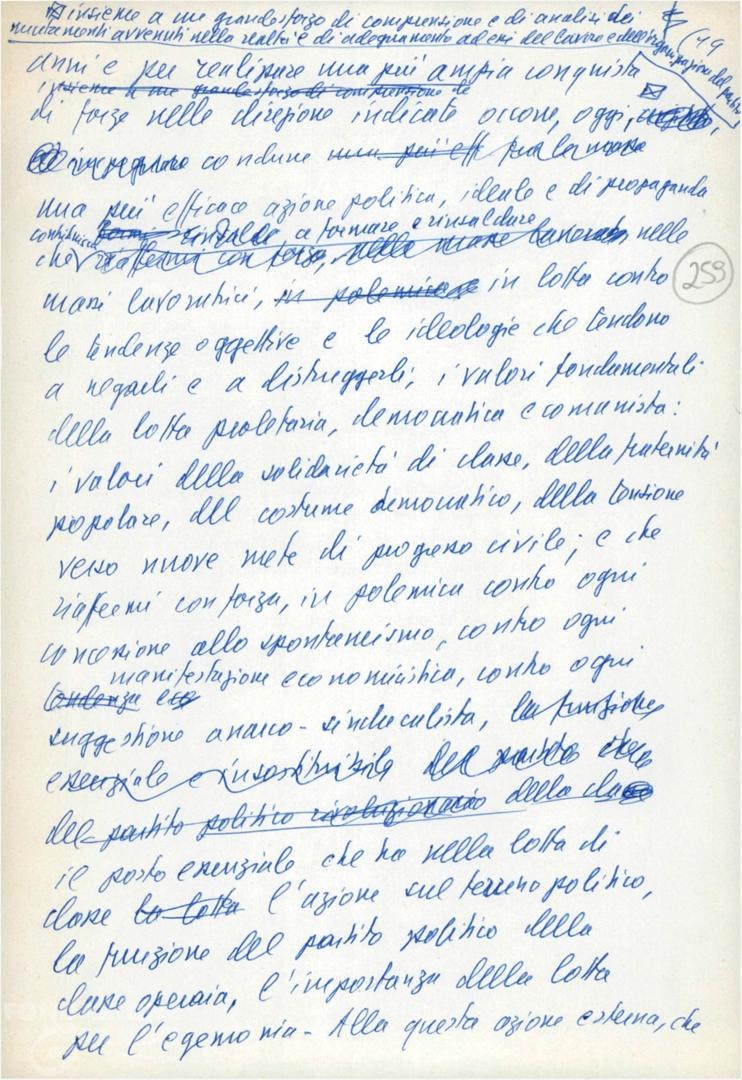 insieme a un grande sforzo di comprensione e di analisi dei
mutamenti avvenuti nella realtà e di adeguamento ad essi del lavoro e dell'organizzazione del partito
(19
anni e per realizzare una più ampia conquista
insieme a uno grande sforzo di comprensione de
di forze nelle direzione indicate occorre, oggi,
condurre una più eff fra le masse
una più efficace azione politica, ideale e di propaganda
contribuisca a formare e rinsaldare
che riaffermi con forza, nelle masse lavoratrici nelle
259
masse lavoratrici, in polemica in lotta contro
le tendenze oggettive e le ideologie che tendono
a negarli e a distruggerli, i valori fondamentali
della lotta proletaria, democratica e comunista:
i valori della solidarietà di classe, della fraternità
popolare, del costume democratico, della tensione
verso nuove mete di progresso civile; e che
riaffermi con forza, in polemica contro ogni
concessione allo spontaneismo, contro ogni
manifestazione economicistica, contro ogni
tendenza eco
suggestione anarco-sindacalista, la funzione
essenziale e insostituibile del partito
del partito politico rivoluzionario della classe
il posto essenziale che ha nella lotta di
classe la lotta l'azione sul terreno politico,
la funzione del partito politico della
classe operaia, l'importanza della lotta
per l'egemonia - Alla questa azione esterna, che